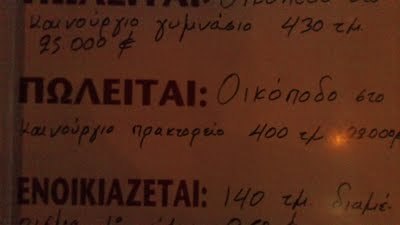 καινούργιο γυμνάσιο 430 τμ.
95 000 €
ΠΩΛΕΙΤΑΙ: Οικόποδο στο
καινούργιο πρακτορείο 400 τμ
ΕΝΟΙΚΙΑΖΕΤΑΙ: 140 τμ. διαμέ-